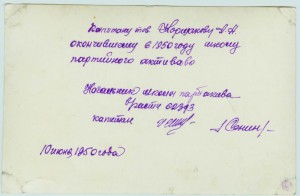 Капитану тов Коржакову А.А
окончившему в 1950 году школу
партийного активаво
Начальник школы партактива
в/части 60393
капитан /Сенин/-
10 июня 1950 года